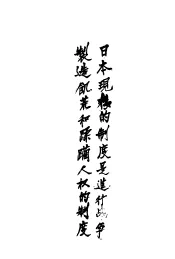 日本现移的制度是进行战争
製造飢荒和蹂躏人权的制度